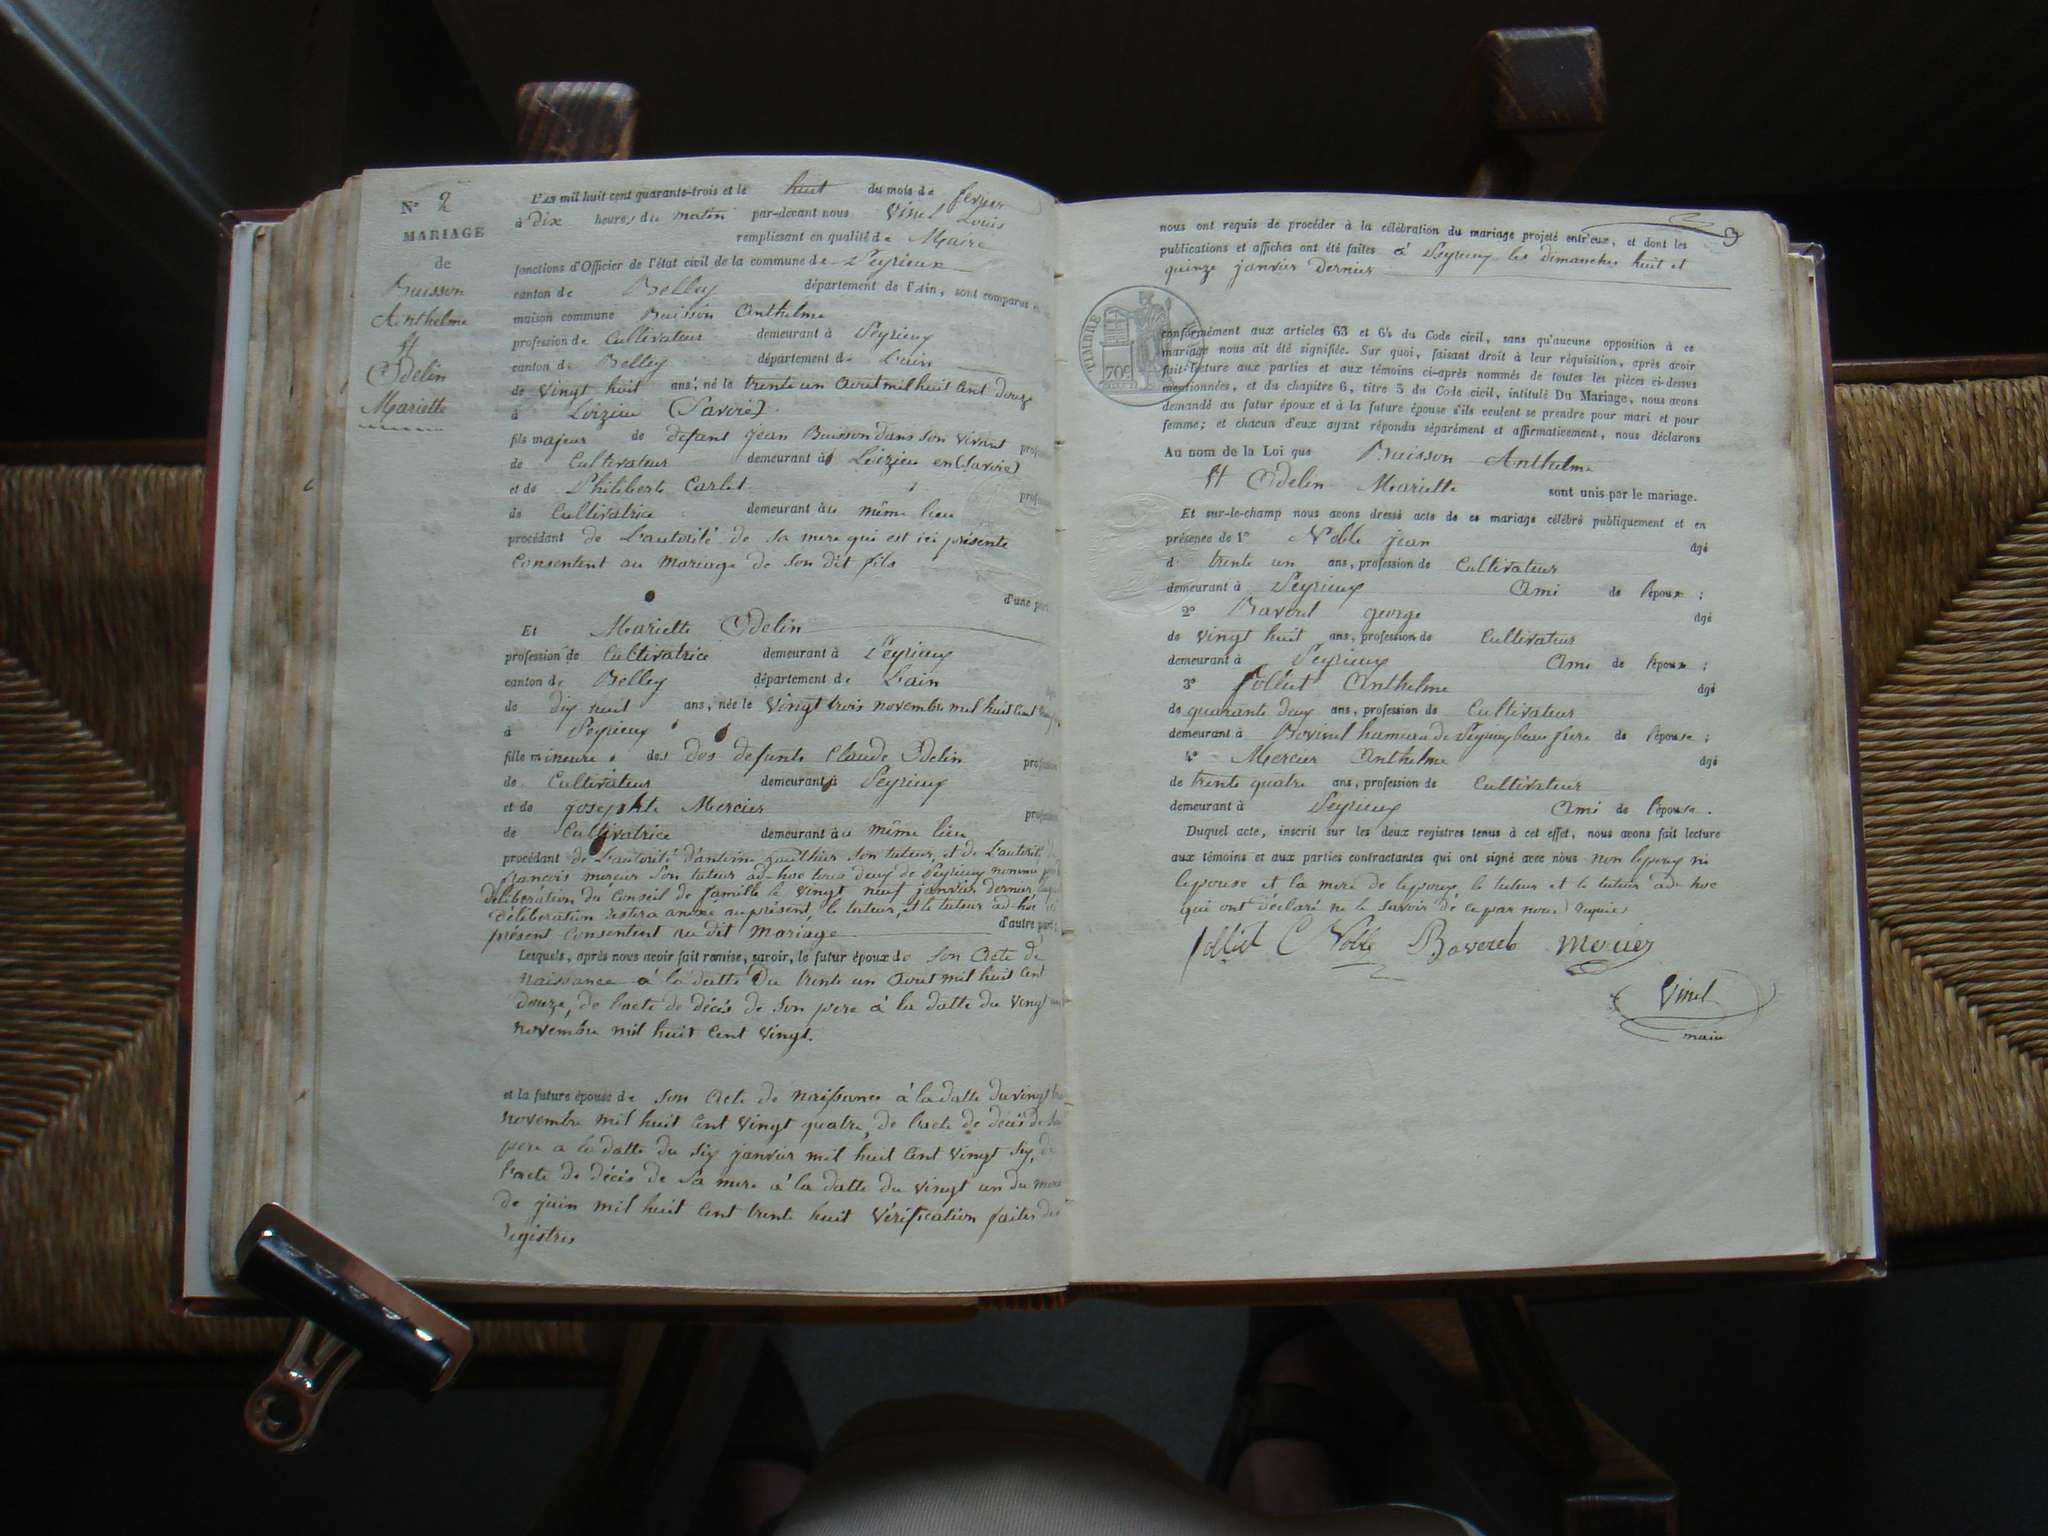 N° 2
MARIAGE
de
Buisson
Anthelme
Et
Odelin
Mariette
L'AN mil huit cent quarante-trois et le huit du mois de fevrier
à Dix heures du matin par-devant nous Vinel Louis
remplissant en qualité de Maire
fonctions d'Officier de l'état civil de la commune de Peyrieux
canton de Belley département de l'Ain, sont comparus
maison commune Buisson Anthelme
profession de Cultivateur demeurant à Peyrieux
canton de Belley département de L'ain
de vingt huit ans, né le trente un Aout mil huit Cent douze
à Loizieu (Savoie)
fils majeur de defunt jean Buisson dans son vivant
de Cultivateur demeurant à Loizieu en (Savoie)
et de Philiberte Carlet
de Cultivatrice demeurant au même lieu
procédant de L'autorité de sa mere qui est ici présente
Consentent au Mariage de son dit fils
d'une part
Et Mariette Odelin
profession de Cultivatrice demeurant à Peyrieux
canton de Belley département de L'ain
de dix huit ans, née le Vingt trois novembre mil huit Cent
à Peyrieux
fille mineure des Des defunts Claude Odelin
de Cultivateur demeurant à Peyrieux
et de josephte Mercier
de Cultivatrice demeurant au même lieu
procédant de L'autorité d'antoine gauthier son tuteur, et de L'autorité
françois mercier son tuteur ad-hoc tous deux de Peyrieux nommés
deliberation du Conseil de famille le vingt neuf janvier dernier
Déliberation restera anexé au présent, le tuteur, et le tuteur ad-hoc
présent Consentent au dit Mariage d'autre part;
Lesquels, après nous avoir fait remise, savoir, le futur époux de son Acte de
naissance à la datte Du trente un Aout mil huit Cent
douze, de l'acte de décès de son pere à la datte du vingt
novembre mil huit Cent vingt.
et la future épouse de son Acte de naissance à la datte du vingt
novembre mil huit Cent Vingt quatre, de l'acte de décès de
pere a la datte du six janvier mil huit Cent Vingt six, de
l'acte de décès de sa mere à la datte du vingt un du mois
de juin mil huit Cent trente huit Vérification faites des
registres
3
nous ont requis de procéder à la célébration du mariage projeté entr'eux, et dont les
publications et affiches ont été faites à Peyrieux les dimanches huit et
quinze janvier dernier
TIMBRE ROYAL
70c
conformément aux articles 63 et 64 du Code civil, sans qu'aucune opposition à ce
mariage nous ait été signifiée. Sur quoi, faisant droit à leur réquisition, après avoir
fait lecture aux parties et aux témoins ci-après nommés de toutes les pièces ci-dessus
mentionnées, et du chapitre 6, titre 5 du Code civil, intitulé Du Mariage, nous avons
demandé au futur époux et à la future épouse s'ils veulent se prendre pour mari et pour
femme; et chacun d'eux ayant répondu séparément et affirmativement, nous déclarons
Au nom de la Loi que Buisson Anthelme
Et Odelin Mariette sont unis par le mariage.
Et sur-le-champ nous avons dressé acte de ce mariage célébré publiquement et en
présence de 1° Noble jean âgé
de trente un ans, profession de Cultivateur
demeurant à Peyrieux Ami de l'époux;
2° Baverel george âgé
de vingt huit ans, profession de Cultivateur
demeurant à Peyrieux Ami de l'époux;
3° Jolliet Anthelme âgé
de quarante deux ans, profession de Cultivateur
demeurant à Bovinel hameau de Peyrieux beau frere de l'épouse;
4° Mercier Anthelme âgé
de trente quatre ans, profession de Cultivateur
demeurant à Peyrieux Ami de l'épouse.
Duquel acte, inscrit sur les deux registres tenus à cet effet, nous avons fait lecture
aux témoins et aux parties contractantes qui ont signé avec nous non lepoux ni
lepouse et la mere de lepoux, le tuteur et le tuteur ad-hoc
qui ont déclaré ne le savoir de ce par nous requis
Jolliet C Noble Baverel mercier
Vinel
maire